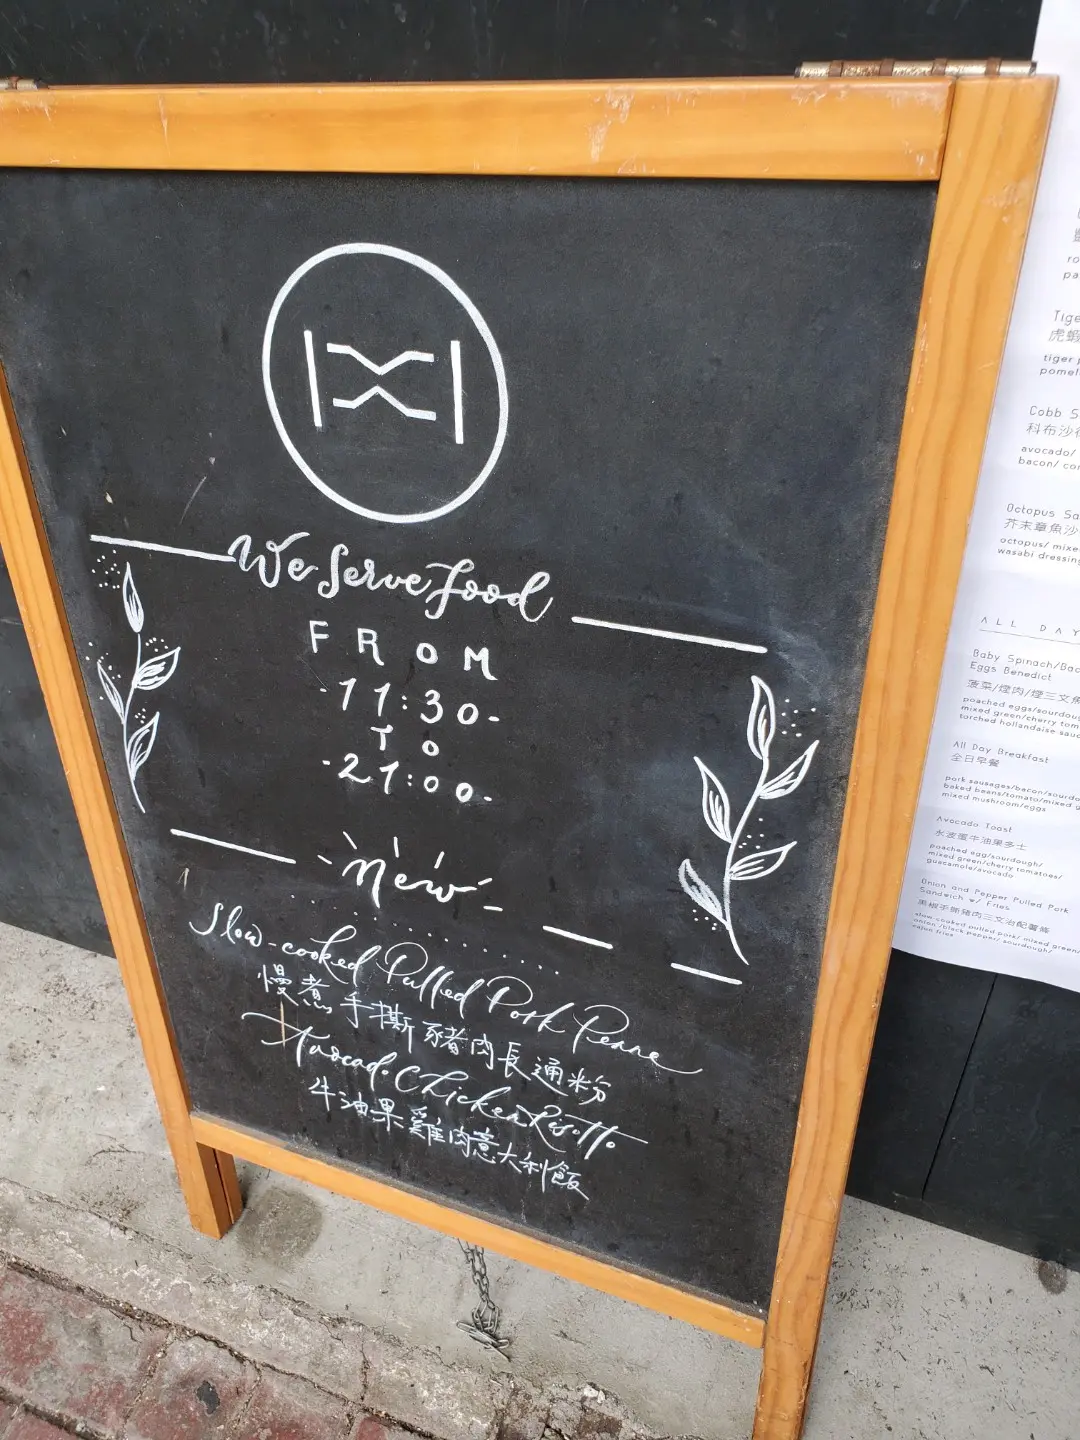 We Serve Food
FROM
-11:30-
TO
-21:00-
New
Slow-cooked Pulled Pork Penne
慢煮手撕豬肉長通粉
Avocado Chicken Risotto
牛油果雞肉意大利飯
ro
pa
Tige
虎蝦
tiger p
pomel
Cobb S
科布沙
avocado/
bacon/ co
Octopus Sa
芥末章魚沙
octopus/ mixe
wasabi dressing
ALL DAY
Baby Spinach/Bac
Eggs Benedict
菠菜/煙肉/煙三文魚
poached eggs/sourdou
mixed green/cherry tom
torched hollandaise sauc
All Day Breakfast
全日早餐
pork sausages/bacon/sourdo
baked beans/tomato/mixed g
mixed mushroom/eggs
Avocado Toast
水波蛋牛油果多士
poached egg/sourdough/
mixed green/cherry tomatoes/
guacamole/avocado
Onion and Pepper Pulled Pork
Sandwich w/ Fries
黑椒手撕豬肉三文治配薯條
slow-cooked pulled pork/ mixed green/
onion /black pepper/ sourdough/
cajun fries